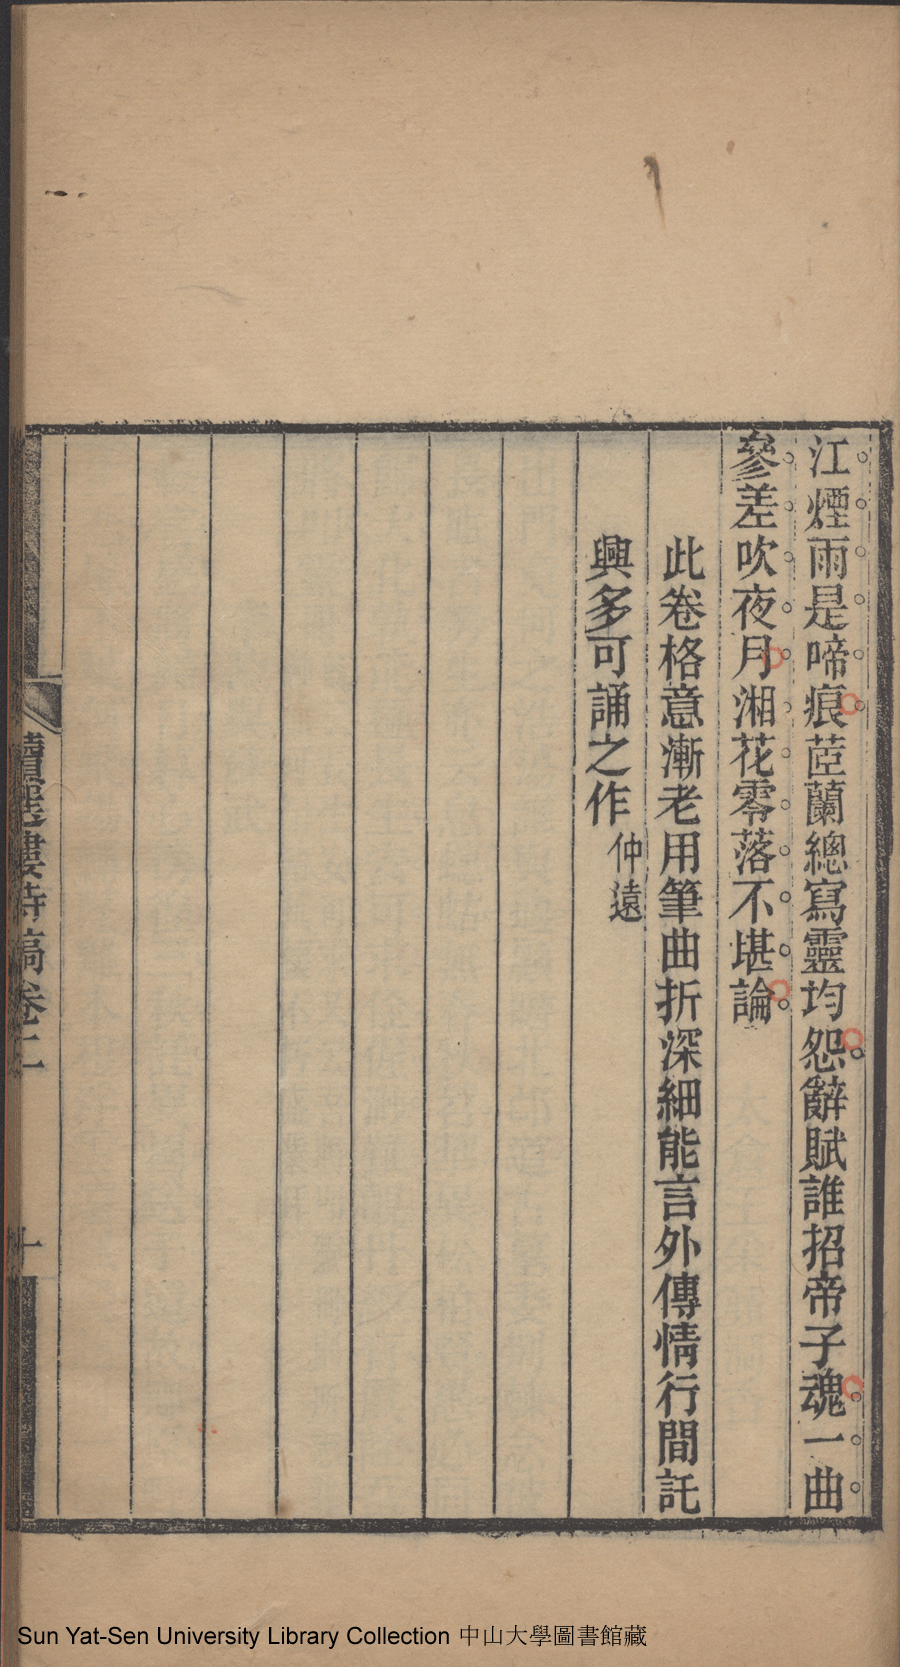 江煙雨是啼痕茝蘭總寫靈均怨辭賦誰招帝子魂一曲
參差吹夜月湘花零落不堪論
此卷格意漸老用筆曲折深細能言外傳情行間託
興多可誦之作仲遠
讀選樓詩稿卷二
十
Sun Yat-Sen University Library Collection 中山大學圖書館藏